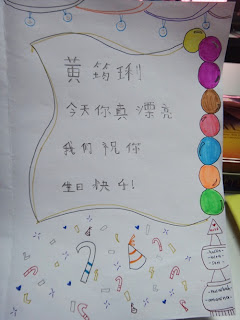 黄筠琍
今天你真漂亮
我们祝你
生日快乐!